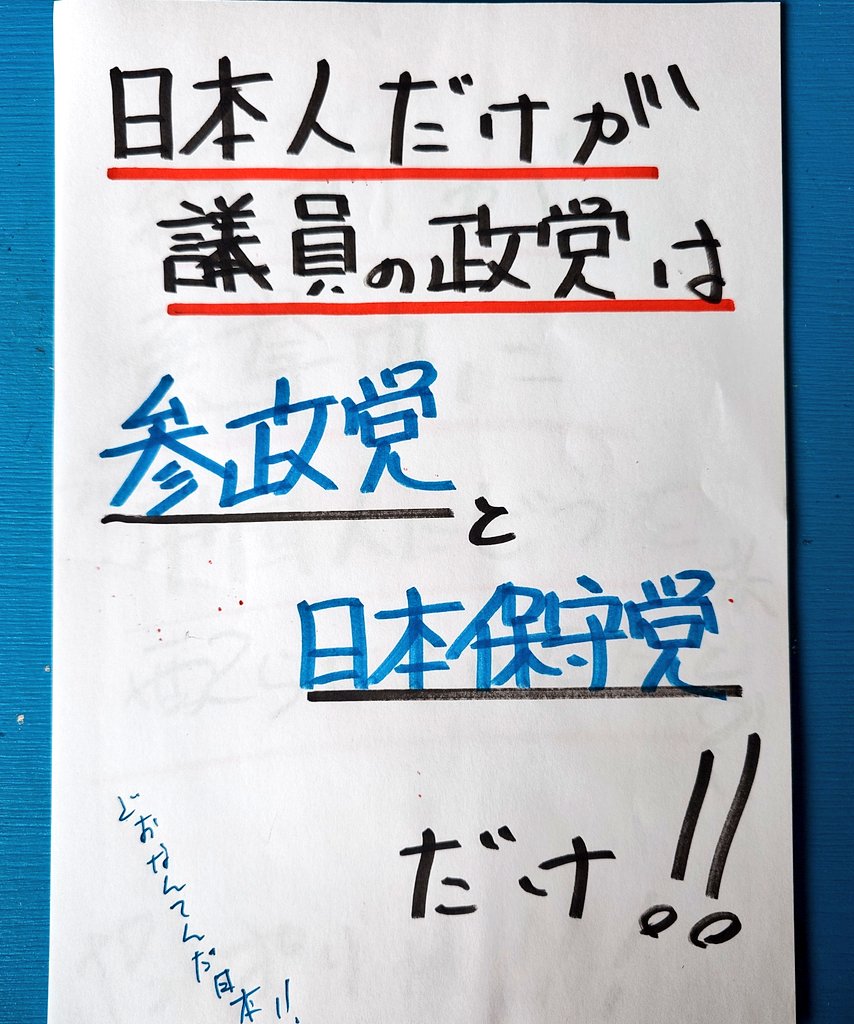 日本人だけが
議員の政党は
参政党
と
日本保守党
だけ!!
どおなんてんだ日本!!